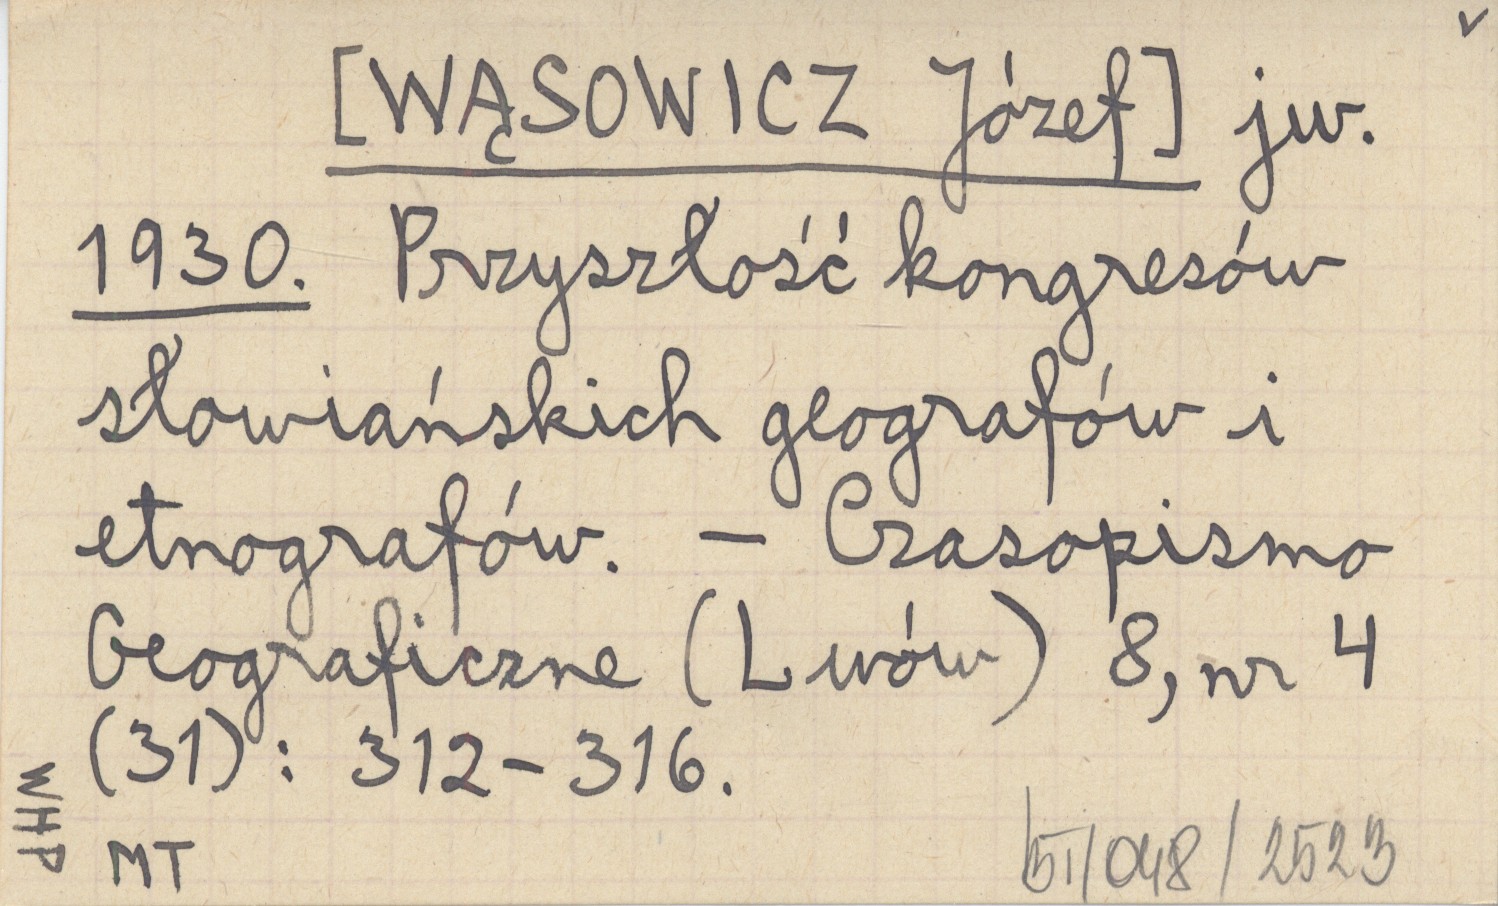 v
[WĄSOWICZ Józef] jw.
1930. Przyszłość kongresów
słowiańskich geografów i
etnografów. – Czasopismo
Geograficzne (Lwów) 8, nr 4
(31): 312–316.
WHP
MT
/048/2523